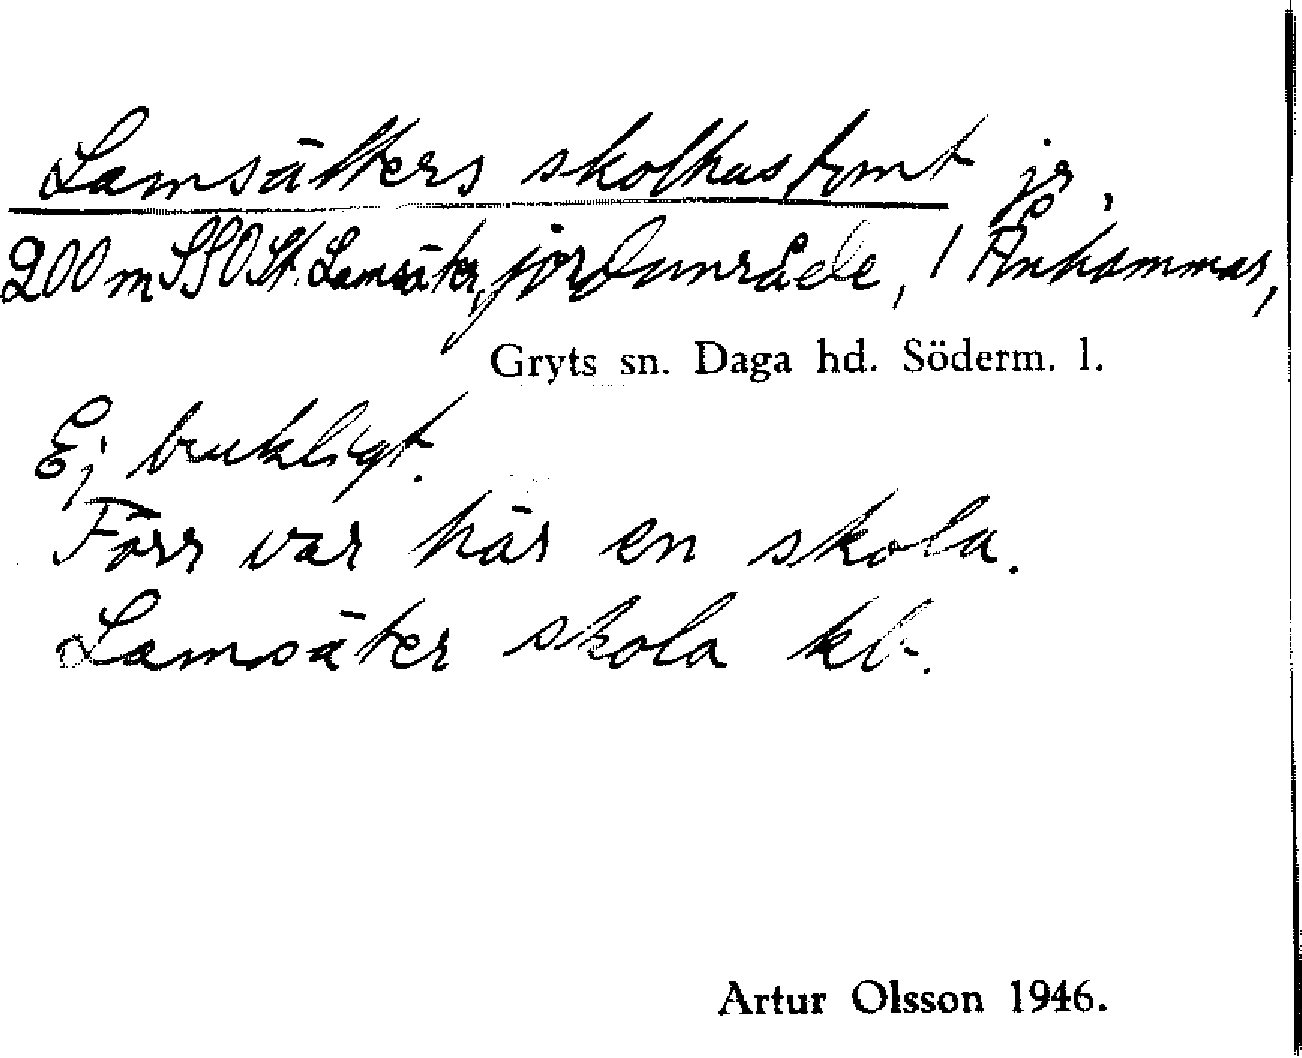 Lamsätters skolhustomt jr,
200 m SSO St. Lamsäter, jordområde, 1 Änhammar,
Gryts sn. Daga hd. Söderm. l.
Ej brukligt.
Förr var här en skola.
Lamsäter skola kb.
Artur Olsson 1946.